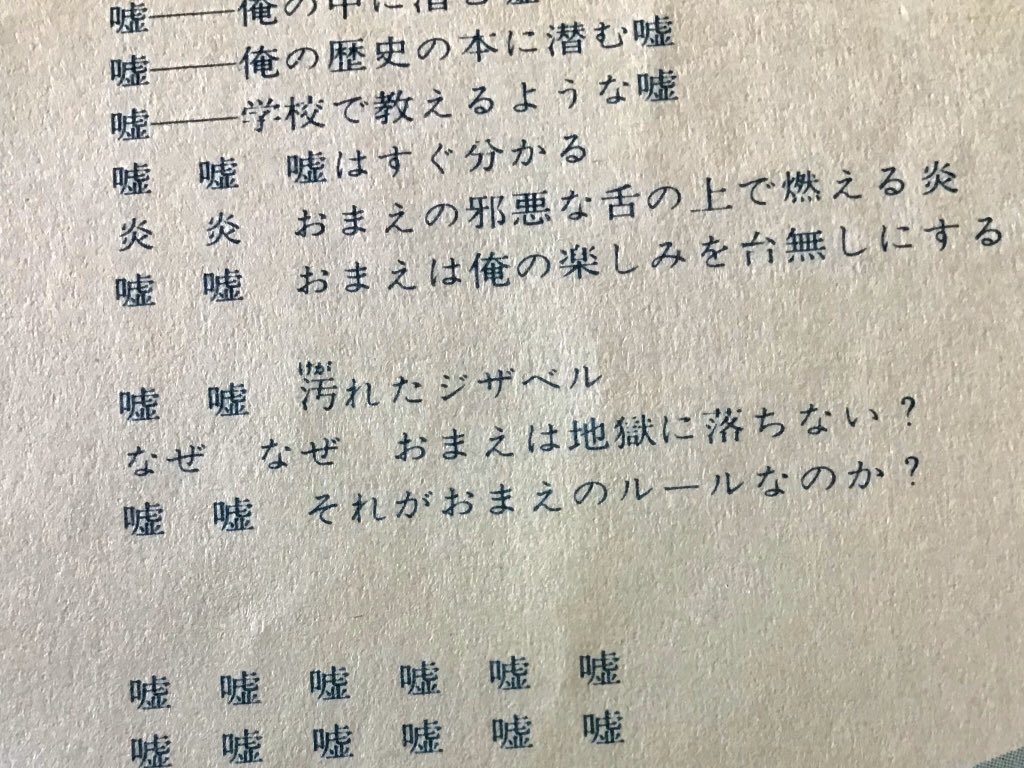 嘘――俺の中に潜む嘘
嘘――俺の歴史の本に潜む嘘
嘘――学校で教えるような嘘
嘘　嘘　嘘はすぐ分かる
炎　炎　おまえの邪悪な舌の上で燃える炎
嘘　嘘　おまえは俺の楽しみを台無しにする
嘘　嘘　汚れたジザベル
なぜ　なぜ　おまえは地獄に落ちない？
嘘　嘘　それがおまえのルールなのか？
嘘　嘘　嘘　嘘　嘘　嘘
嘘　嘘　嘘　嘘　嘘　嘘